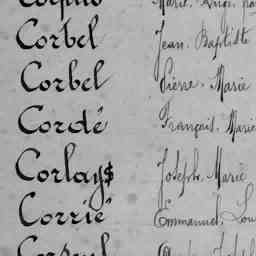 Corbel Jean Baptiste
Corbel Pierre Marie
Cordé François Marie
Corlay$ Joseph Marie
Corrié Emmanuel Lou